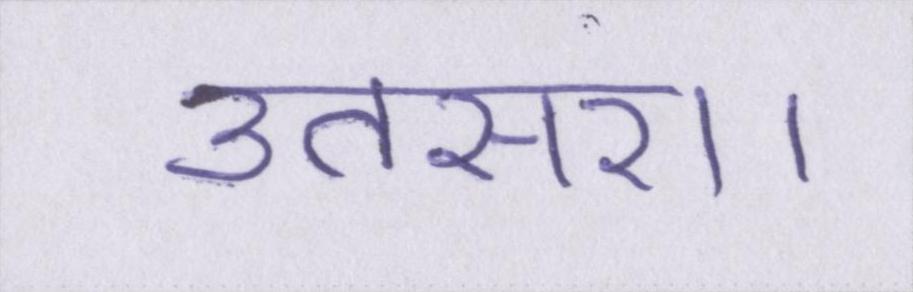 उतसरा।